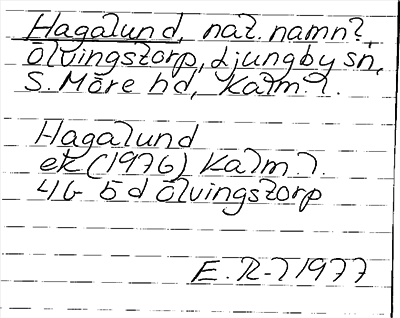 Hagalund, nat. namn?,
Ölvingstorp, Ljungby sn,
S. Möre hd, Kalm. l.
Hagalund
ek (1976) Kalm. l.
4G 5d Ölvingstorp
E. R-l 1977